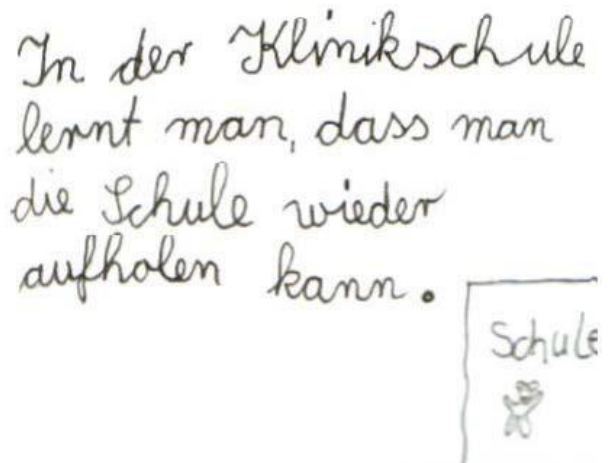 In der Klinikschule
lernt man, dass man
die Schule wieder
aufholen kann.
Schule